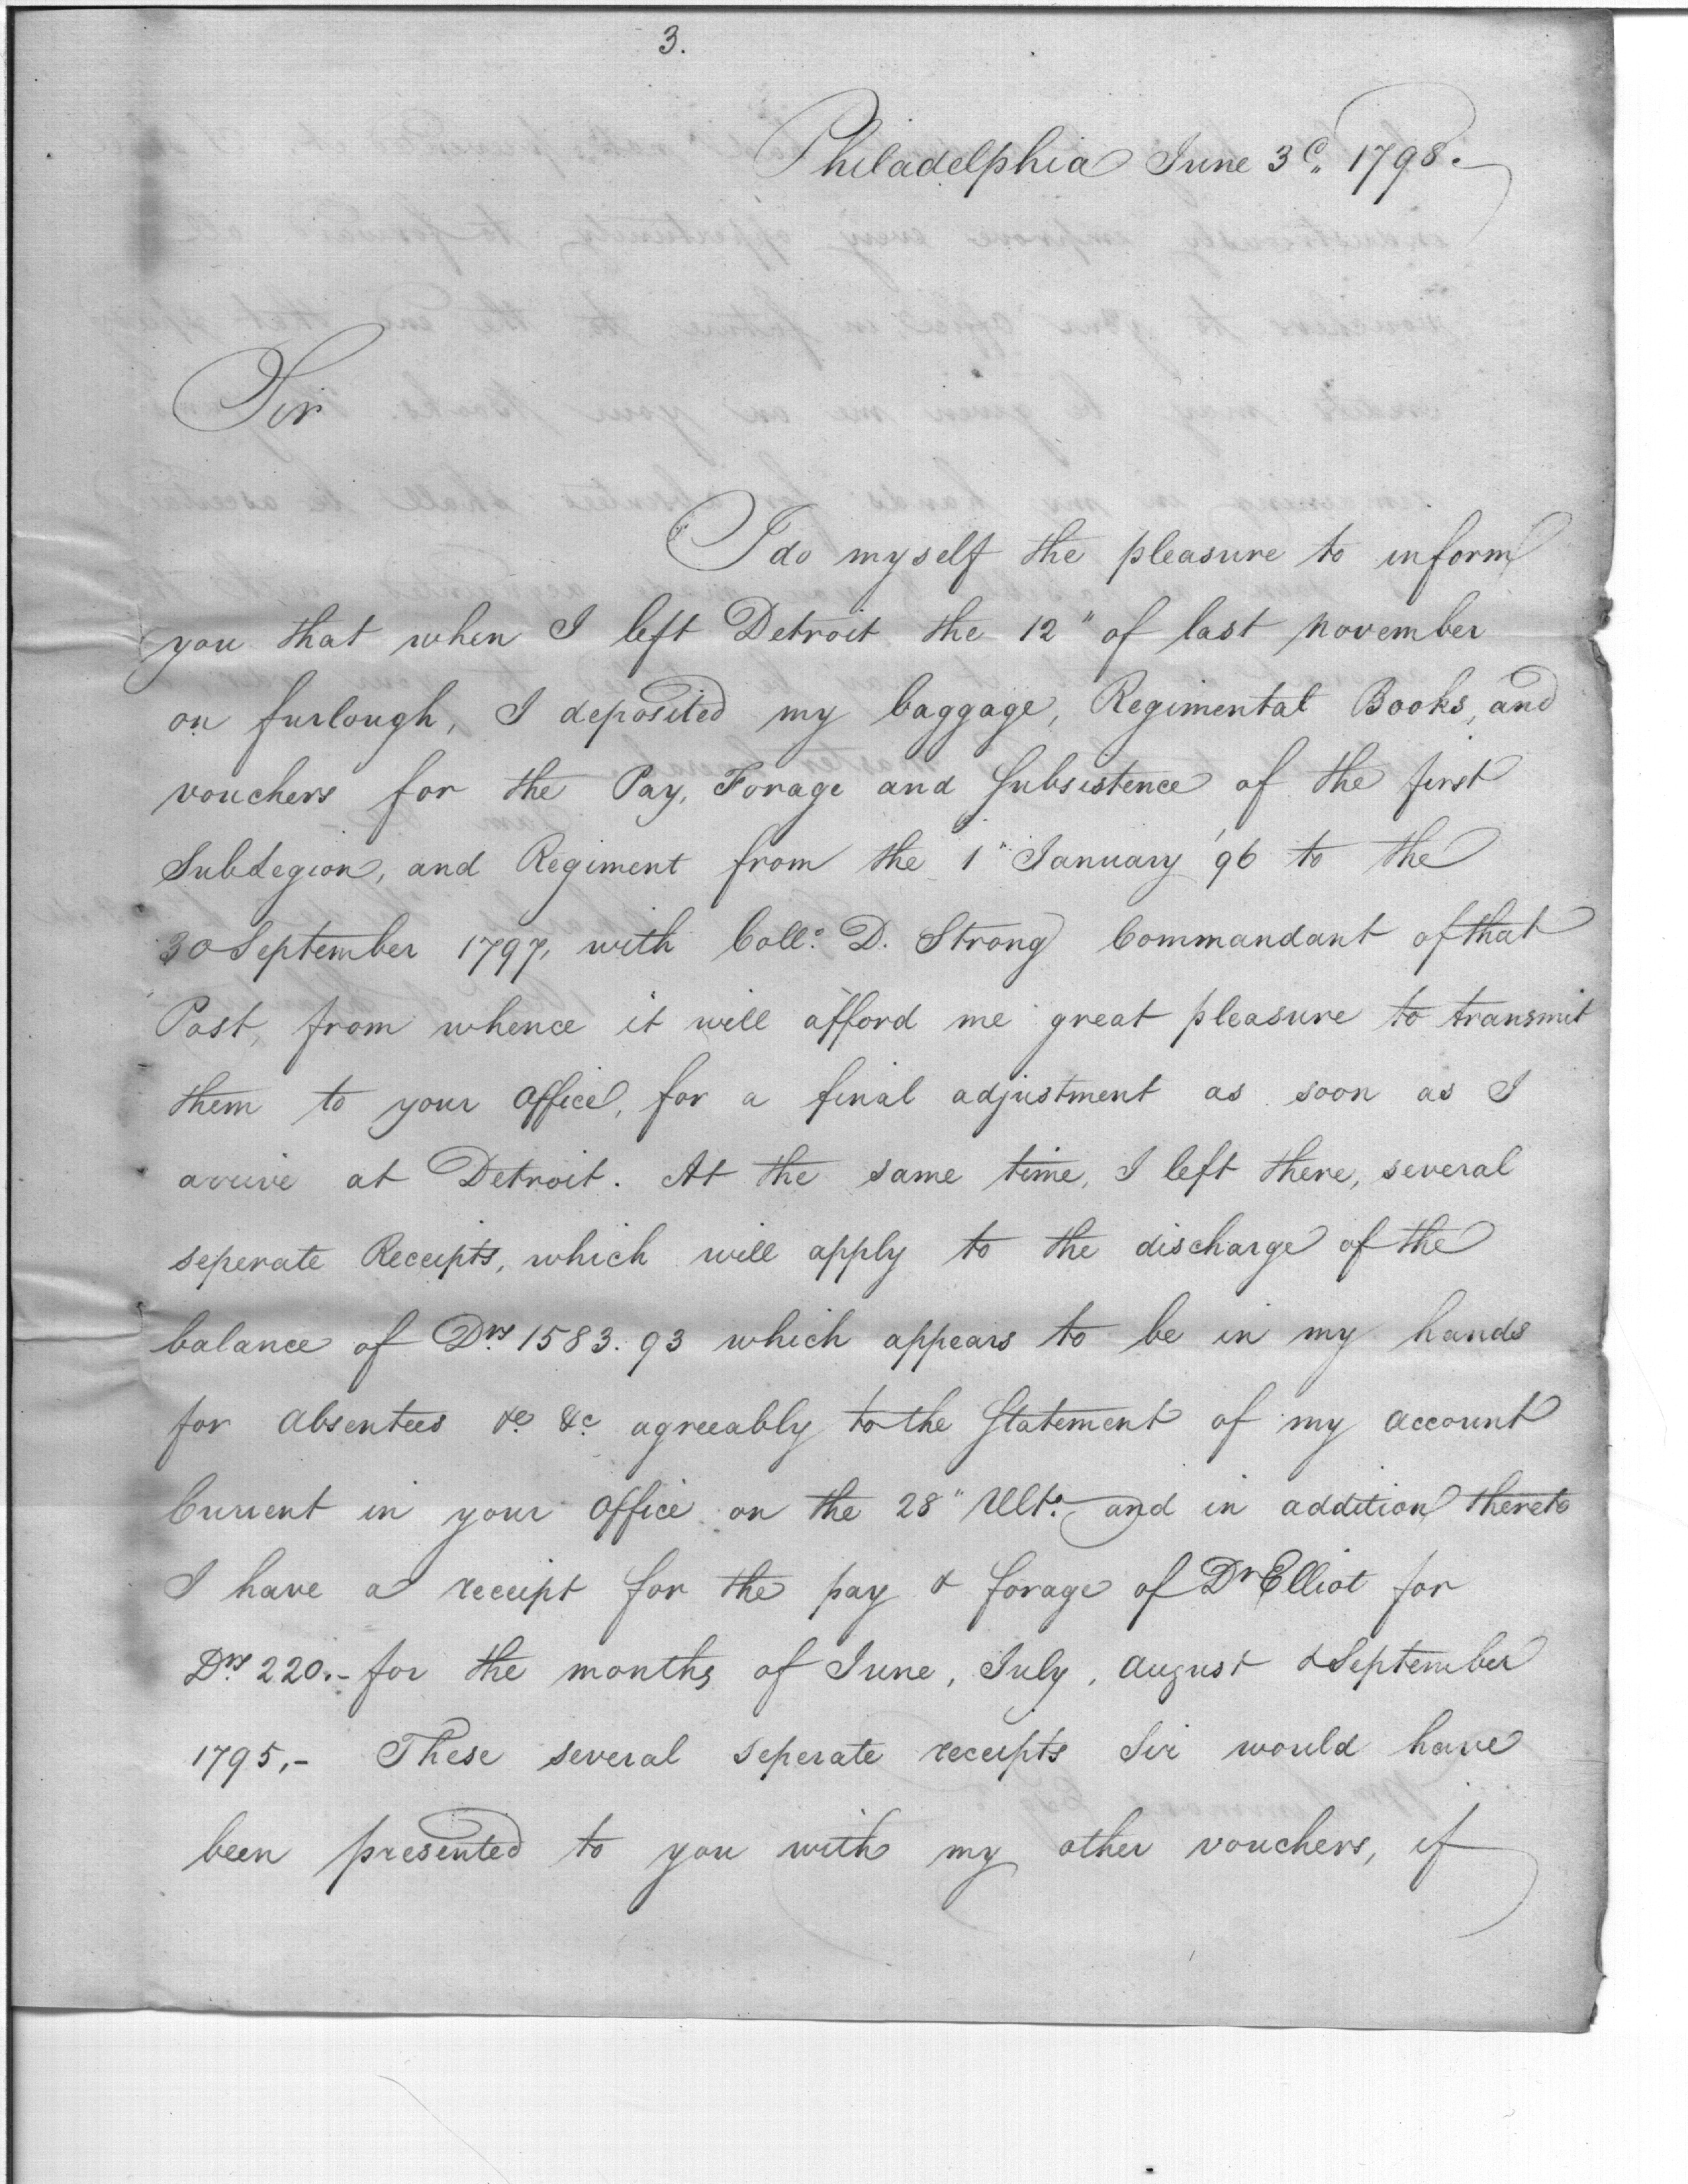 3.
Philadelphia June 3d. 1798.
Sir
I do myself the pleasure to inform
you that when I left Detroit the 12" of last november
on furlough, I deposited my baggage, Regimental Books, and
vouchers for the Pay, Forage and Subsistence of the first
SubLegion, and Regiment from the 1" January '96 to the
30 September 1797, with Coll.o D. Strong Commandant of that
Post, from whence it will afford me great pleasure to transmit
them to your Office, for a final adjustment as soon as I
arrive at Detroit. At the same time, I left there, several
seperate Receipts, which will apply to the discharge of the
balance of Drs. 1583.93 which appears to be in my hands
for Absentees &c. &c. agreeably to the Statement of my account
Current in your Office on the 28" Ulto. and in addition thereto
I have a receipt for the pay & forage of Dr Elliot for
Drs. 220.- for the months of June, July, August & September
1795,- These several seperate receipts Sir would have
been presented to you with my other vouchers, if